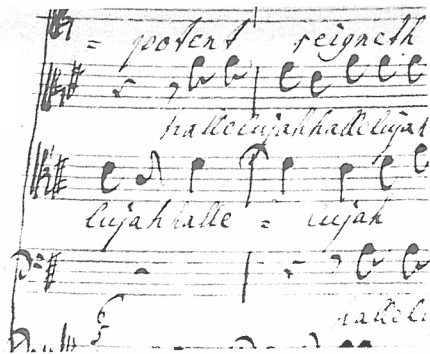 = potent reigneth
hallelujah hallelujah
lujah halle = lujah
6
5
hallelu